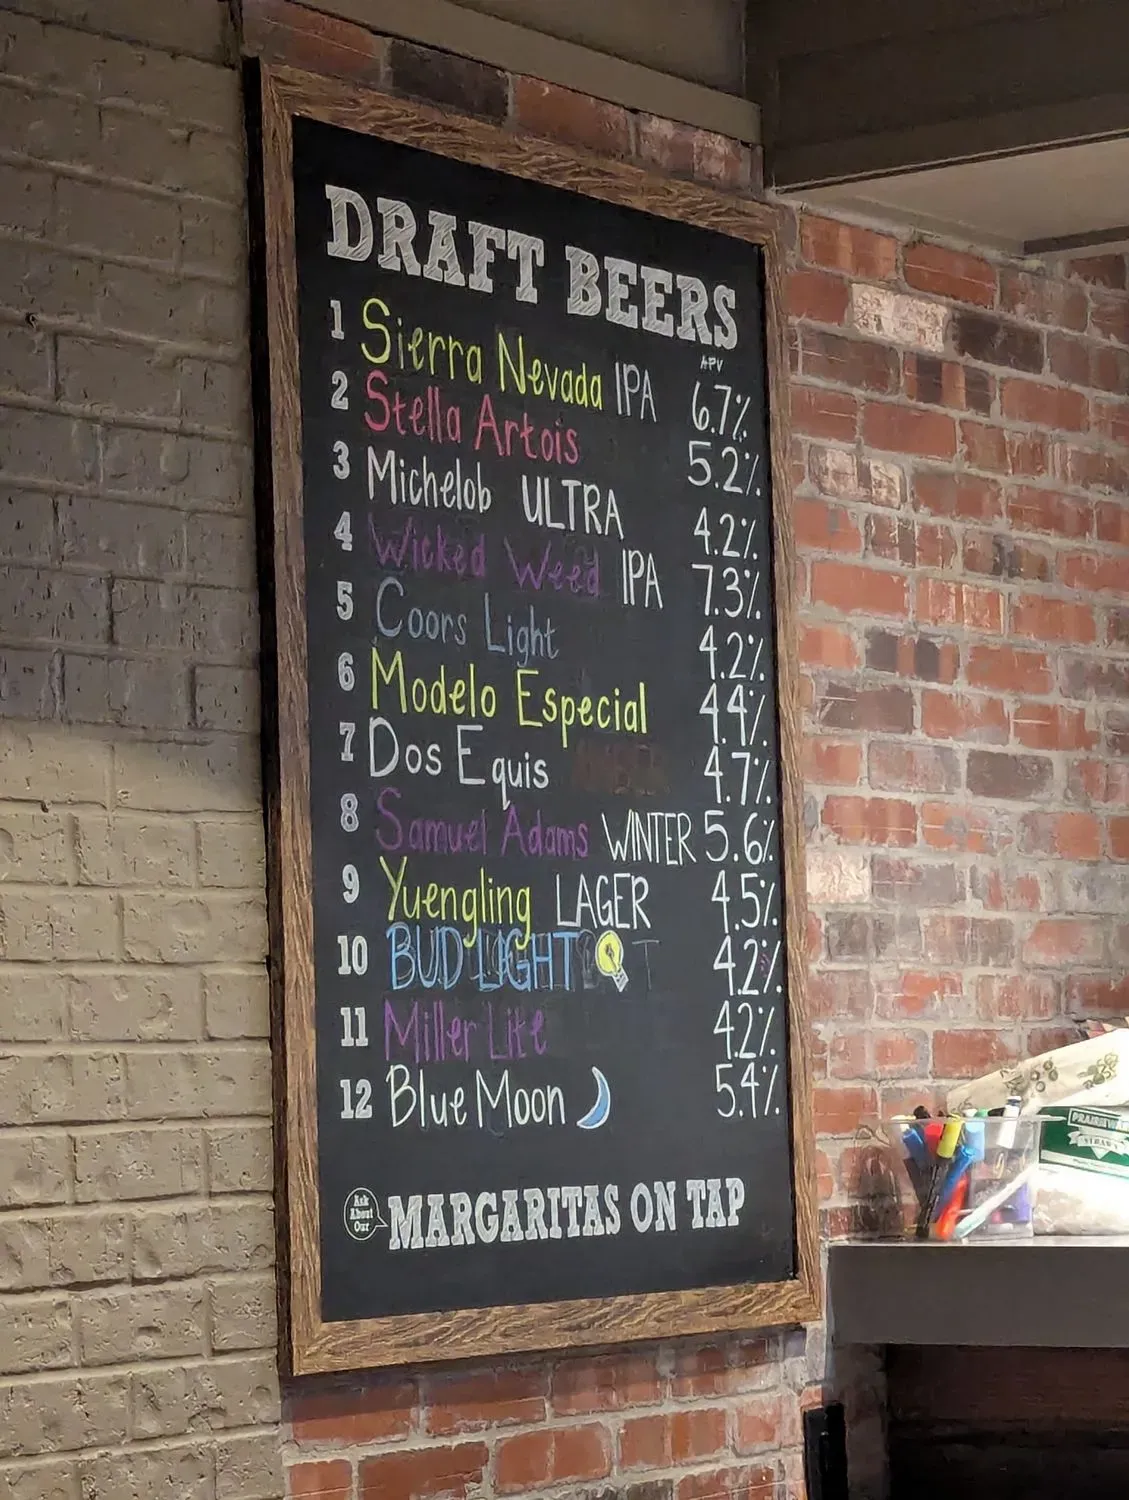 DRAFT BEERS
APV
1 Sierra Nevada IPA 6.7%
2 Stella Artois 5.2%
3 Michelob ULTRA 4.2%
4 Wicked Weed IPA 7.3%
5 Coors Light 4.2%
6 Modelo Especial 4.4%
7 Dos Equis 4.7%
8 Samuel Adams WINTER 5.6%
9 Yuengling LAGER 4.5%
10 BUD LIGHT 4.2%
11 Miller Lite 4.2%
12 Blue Moon 5.4%
Ask
About
Our
MARGARITAS ON TAP